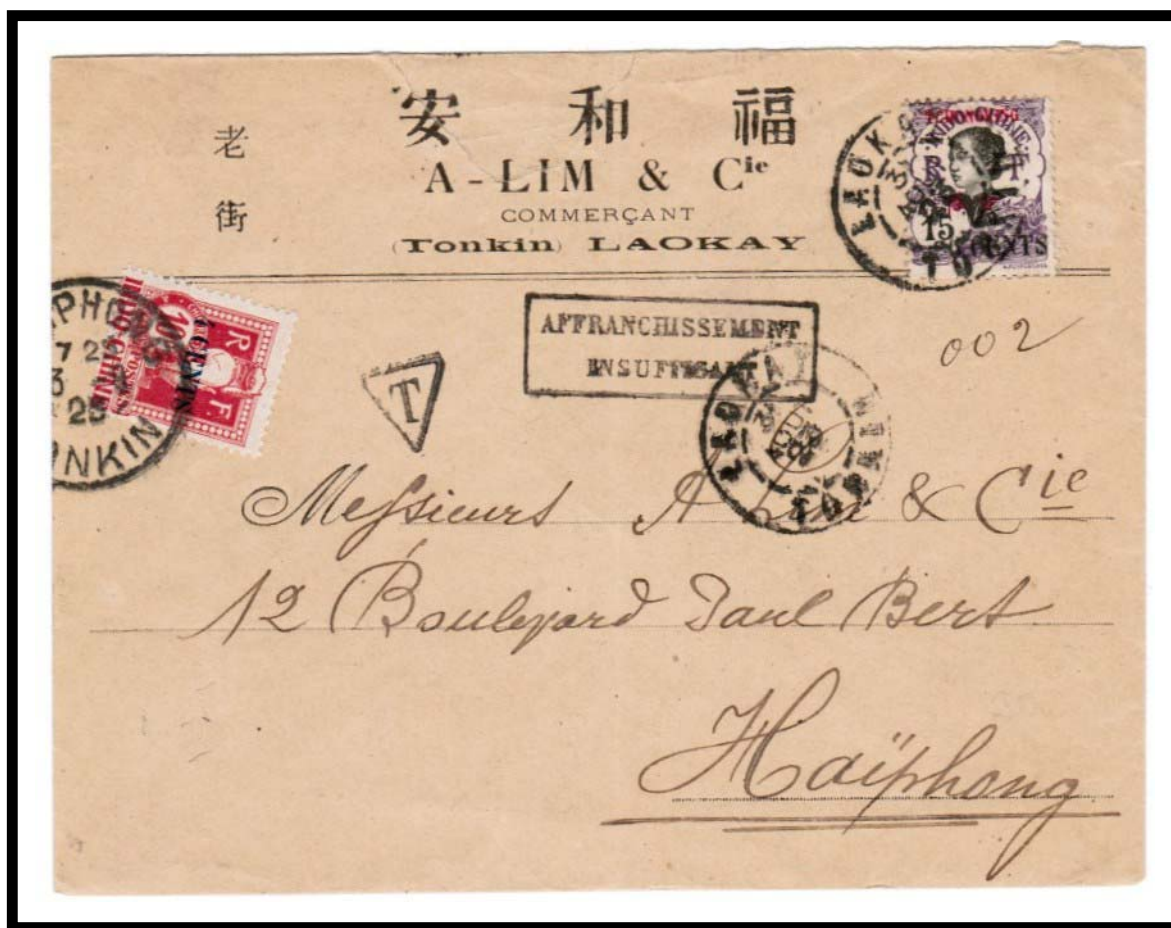 安 和 福
老
街
A-LIM & Cie
COMMERÇANT
(Tonkin) LAOKAY
LAOKAY
INDO-CHINE
R F
15
6 CENTS
HAIPHONG
TONKIN
10
4 CENTS
R. F.
POSTES
INDO-CHINE
T
AFFRANCHISSEMENT
INSUFFISANT
002
LAOKAY
TONKIN
Messieurs A Lim & Cie
12 Boulevard Paul Bert
Haïphong